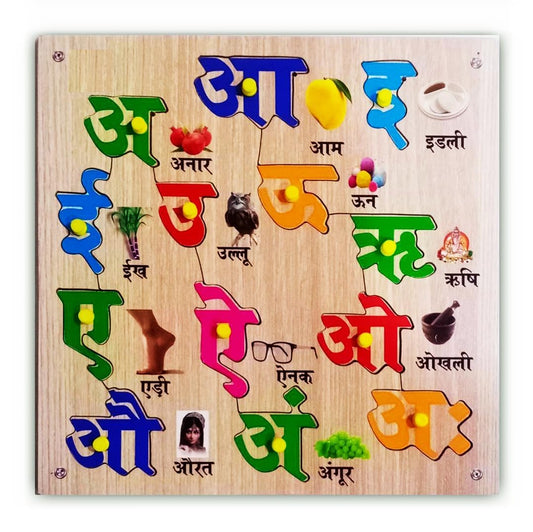 अ
अनार
आ
आम
इ
इडली
ई
ईख
उ
उल्लू
ऊ
ऊन
ऋ
ऋषि
ए
एड़ी
ऐ
ऐनक
ओ
ओखली
औ
औरत
अं
अंगूर
अः